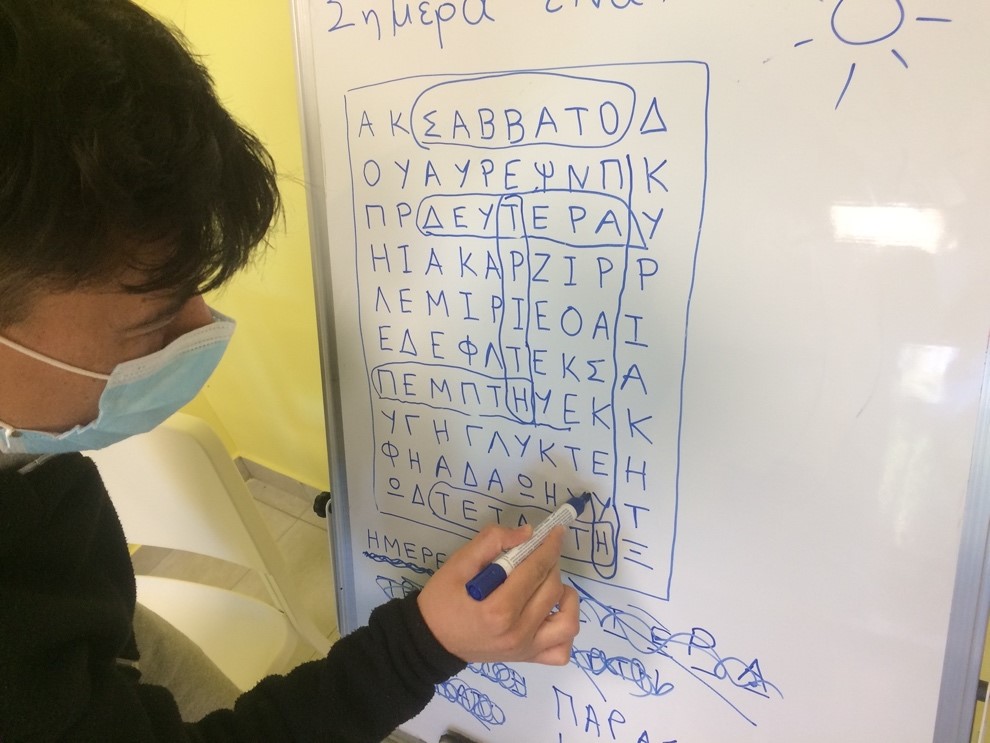 Σημερα
Α Κ Σ Α Β Β Α Τ Ο Δ
Ο Υ Α Υ Ρ Ε Ψ Ν Π Κ
Π Ρ Δ Ε Υ Τ Ε Ρ Α Υ
Η Ι Α Κ Α Ρ Ζ Ι Ρ Ρ
Λ Ε Μ Ι Ρ Ι Ε Ο Α Ι
Ε Δ Ε Φ Λ Τ Ε Κ Σ Α
Π Ε Μ Π Τ Η Υ Ε Κ Κ
Υ Γ Η Γ Λ Υ Κ Τ Ε Η
Φ Η Α Δ Α Ω Η Υ Υ Τ
Ω Δ Τ Ε Τ Α Τ Η Ξ
ΗΜΕΡΕ
ΠΑΡΑ